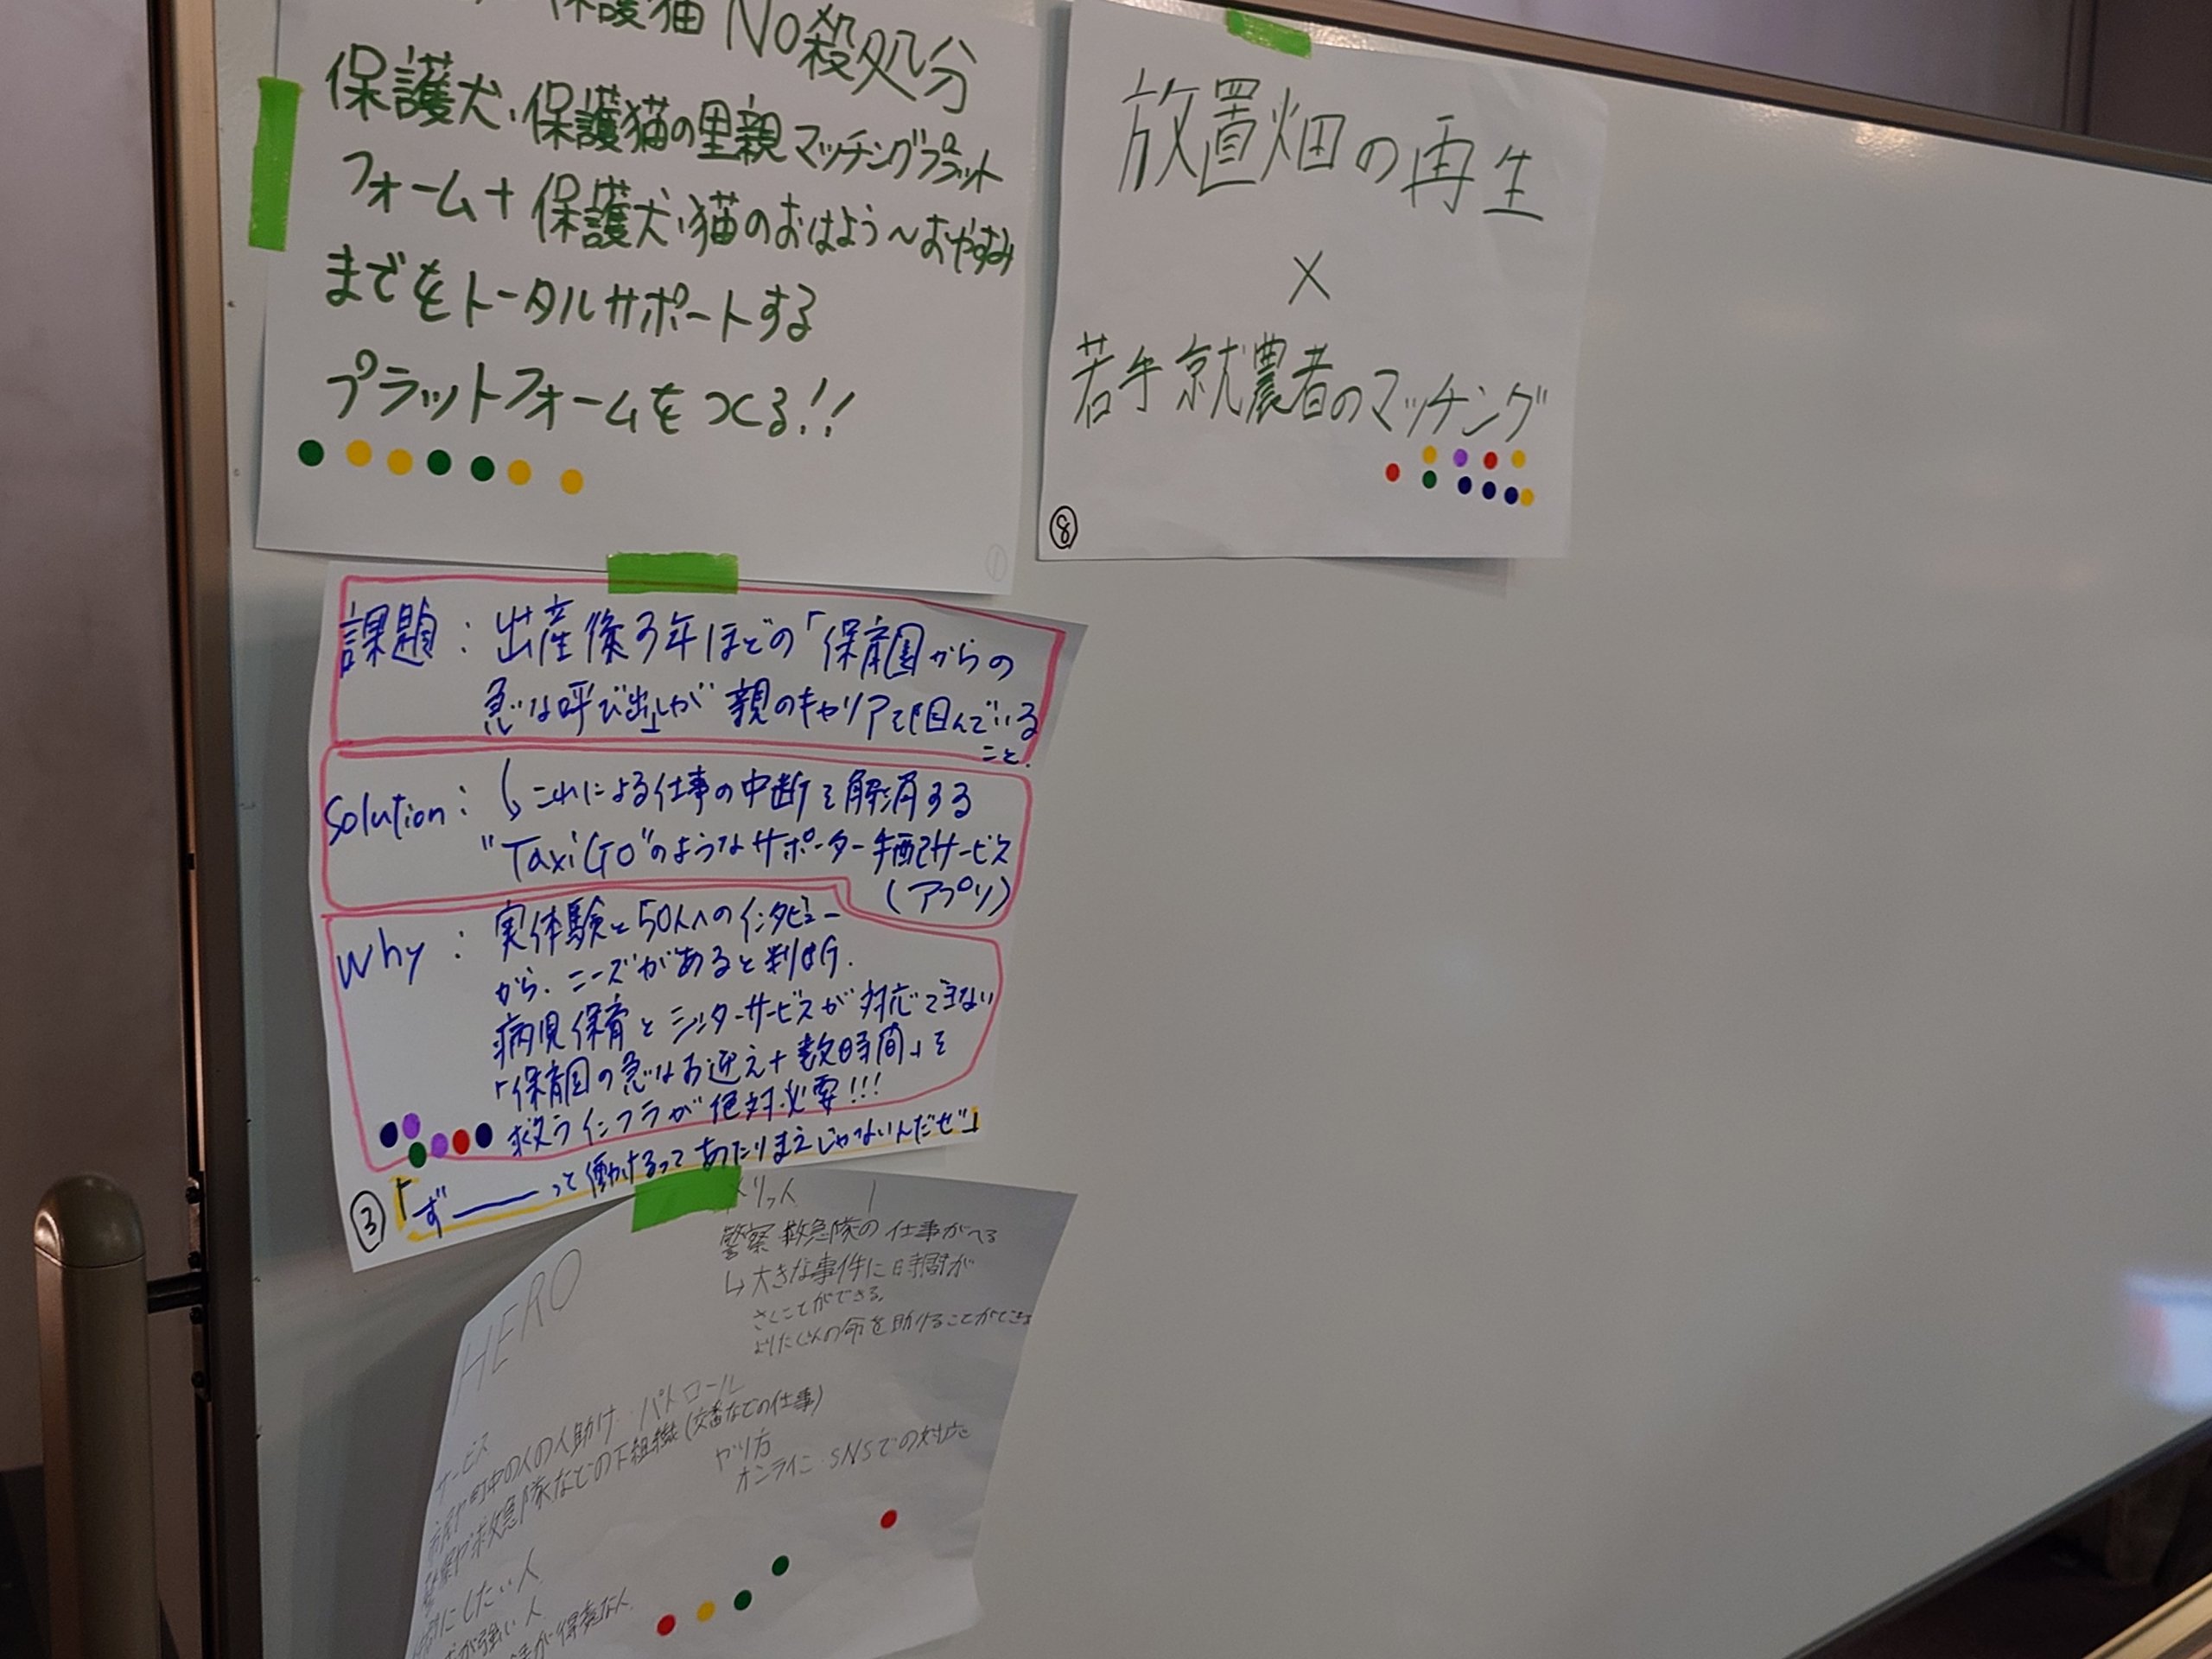 保護猫 No殺処分
保護犬、保護猫の里親マッチングプラット
フォーム+保護犬、猫のおはよう〜おやすみ
までをトータルサポートする
プラットフォームをつくる!!
放置畑の再生
×
若手就農者のマッチング
⑧
課題:出産後3年ほどの「保育園からの
急な呼び出し」が親のキャリアを阻んでいる
こと.
Solution:↳これによる仕事の中断を解消する
"TaxiGO"のようなサポーター手配サービス
(アプリ)
Why:実体験と50人へのインタビュー
から、ニーズがあると判明.
病児保育とシッターサービスが対応できない
「保育園の急なお迎え+数時間」を
救うインフラが絶対必要!!!
③「ず――っと働けるってあたりまえじゃないんだぜ」
HERO
警察 救急隊の仕事がへる
↳大きな事件に時間が
さくことができる。
よりたくさんの命を助けることができる
サービス
町中の人の人助け パトロール
救急隊などの下組織(交番などの仕事)
やり方
オンライン SNSでの対応
にしたい人
が強い人
が得意な人